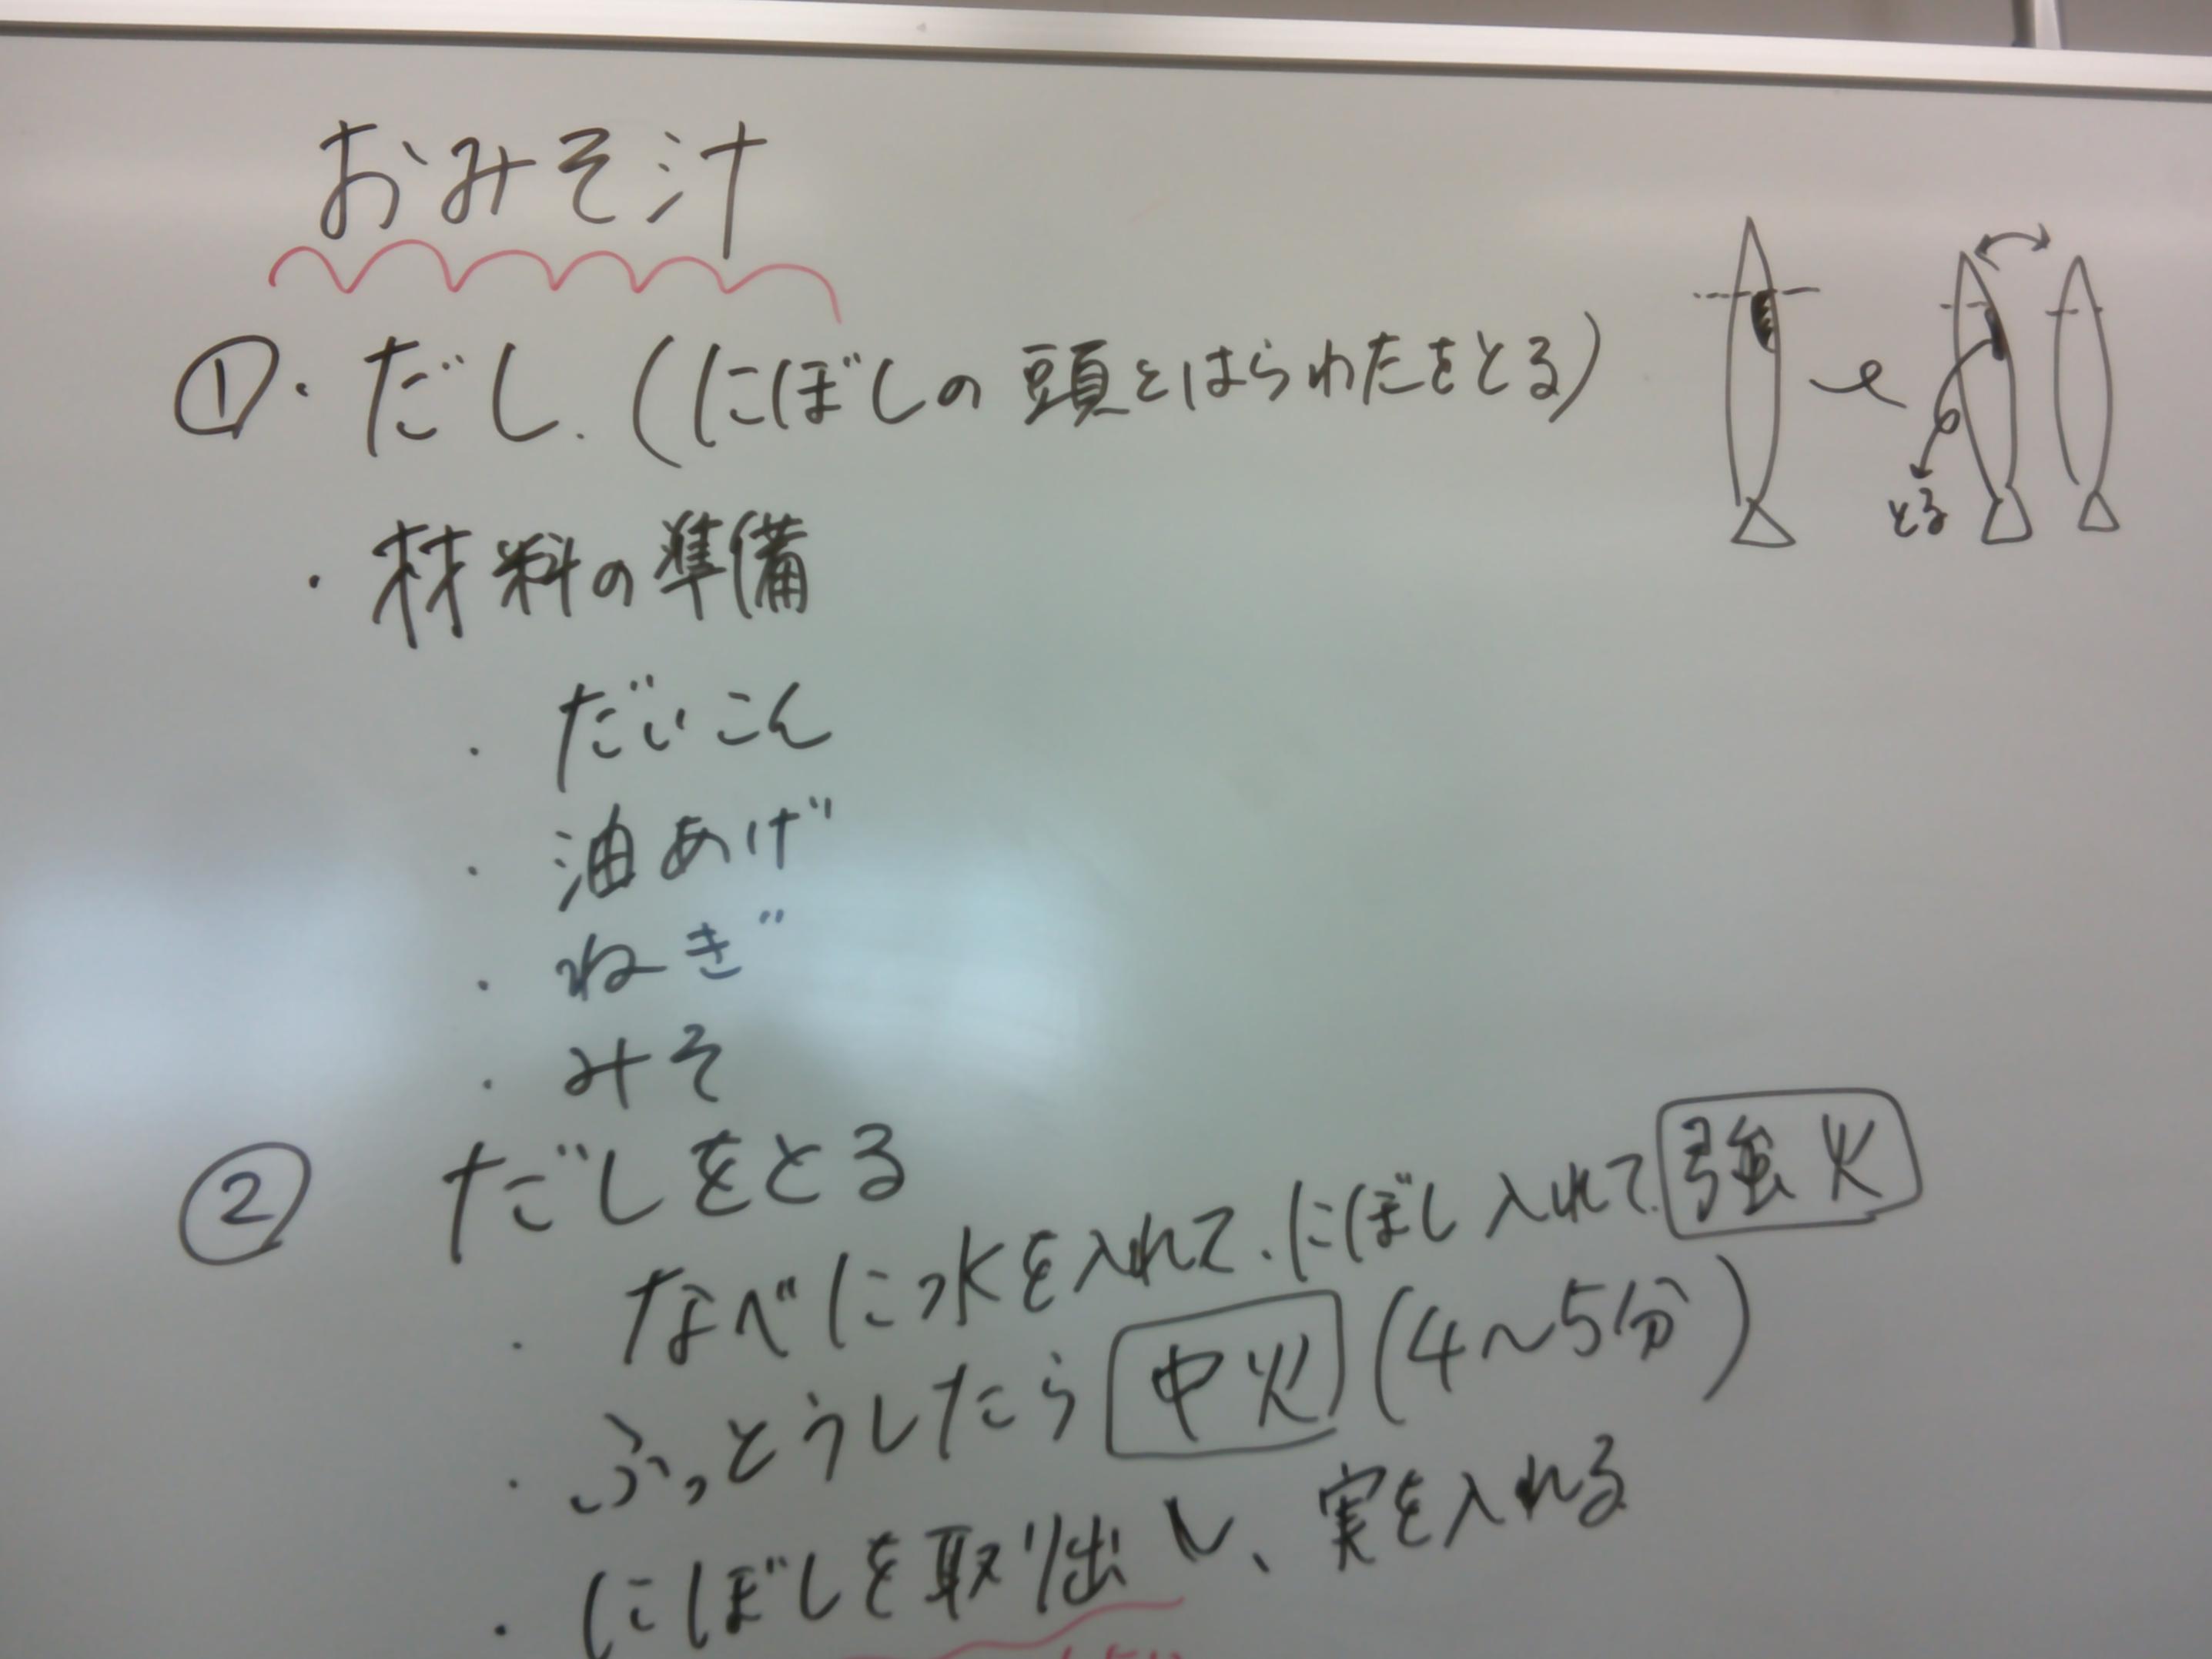 おみそ汁
①・だし.(にぼしの頭とはらわたをとる)
とる
・材料の準備
・だいこん
・油あげ
・ねぎ
・みそ
② だしをとる
・なべに水を入れて.にぼし入れて.強火
・ふっとうしたら中火(4～5分)
・にぼしを取り出し、実を入れる